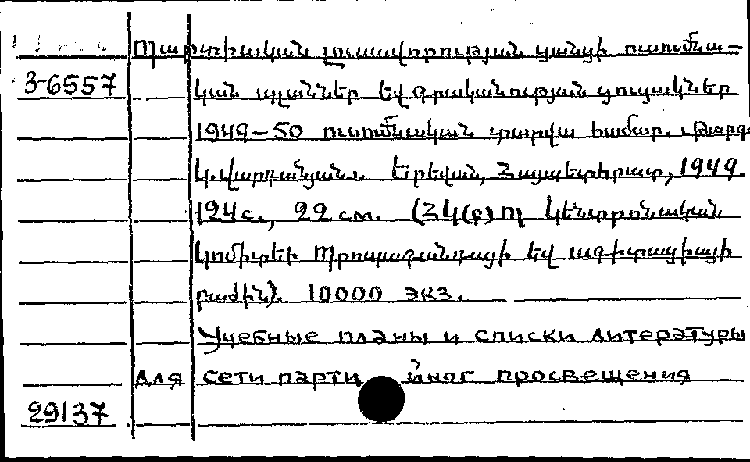 Պարտիական լուսավորության ցանցի ուսումնա-
3-6557
կան պլաններ եվ գրականության ցուցակներ
1949-50 ուսումնական տարվա համար. Թարգ.
Կ. Վարդանյան. Երեվան, Հայպետհրատ, 1949.
124 с., 22 см. (ՀԿ(բ)Պ Կենտրոնական
կոմիտեի Պրոպագանդայի եվ ագիտացիայի
բաժին). 10000 экз.
Учебные планы и списки литературы
для сети парти йног просвещения
29137